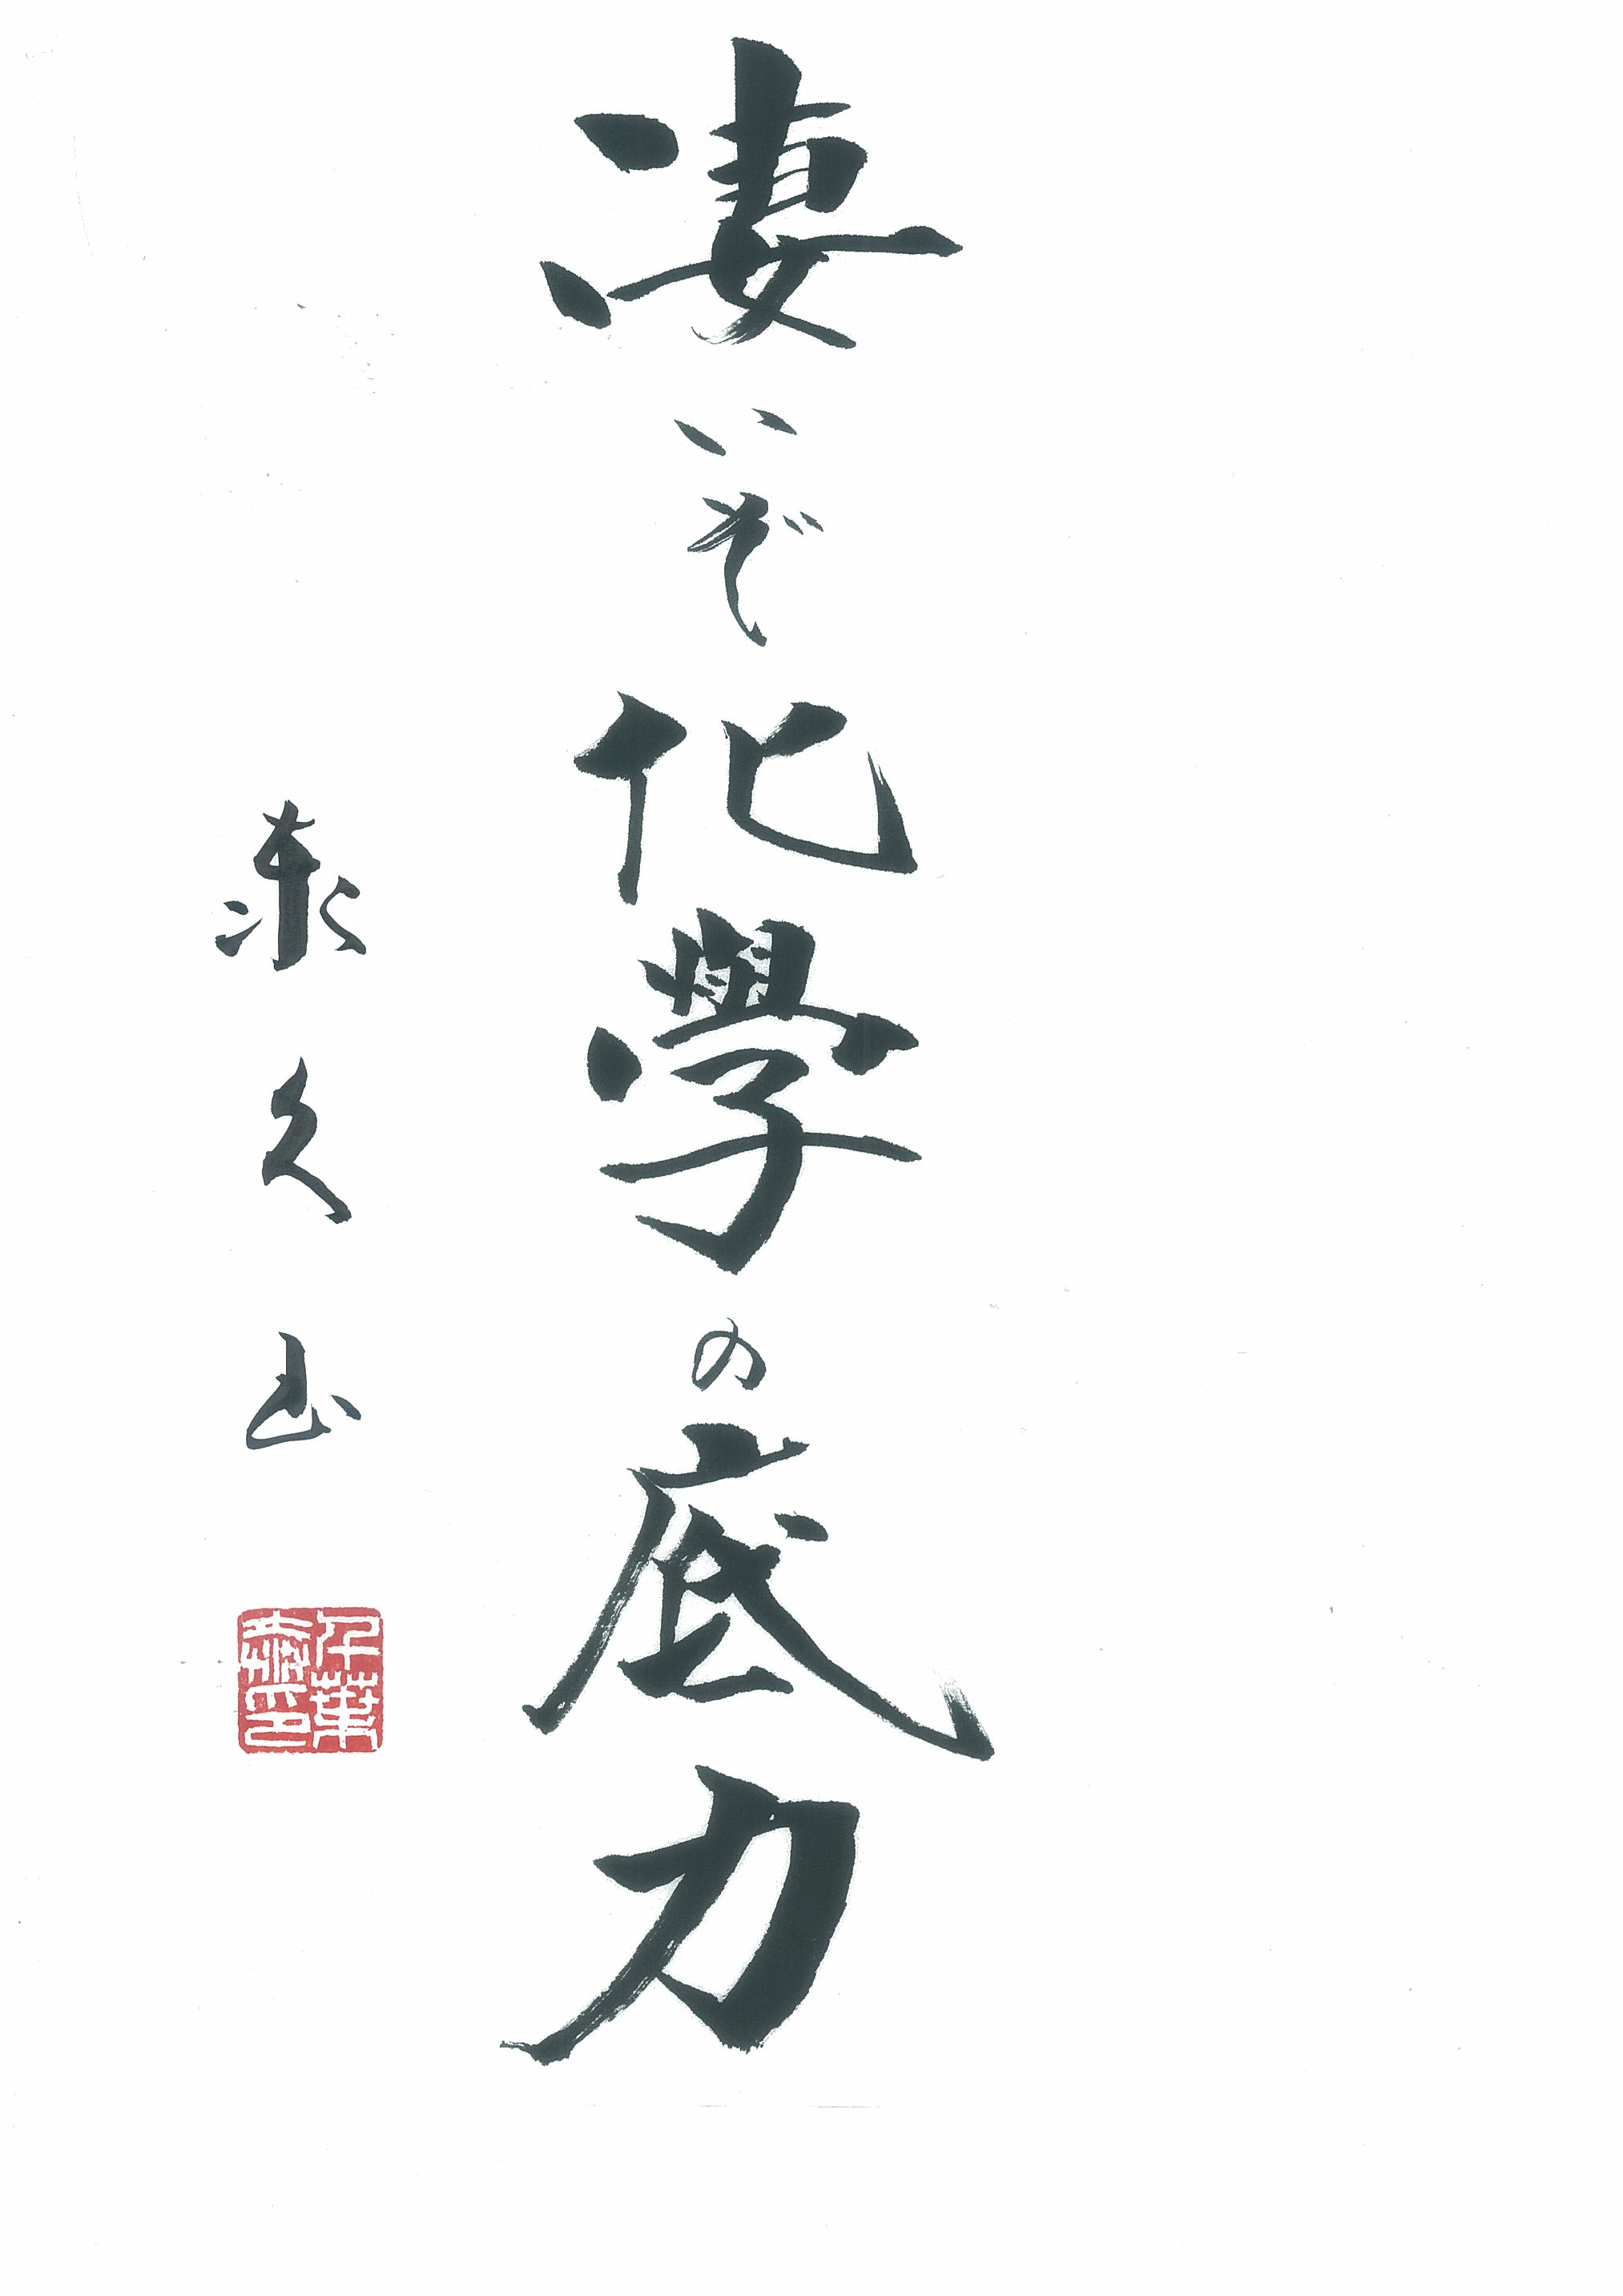 凄いぞ化學の底力
泰久山
千葉
泰印